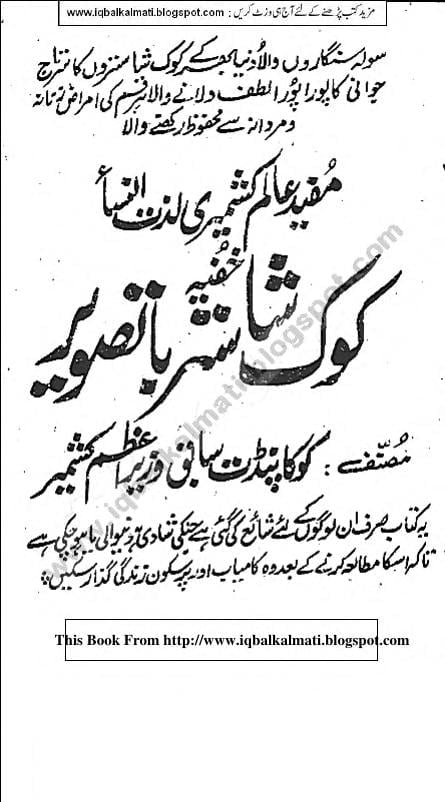 مزید کتب پڑھنے کے لئے آج ہی وزٹ کریں : www.iqbalkalmati.blogspot.com
سولہ سنگاروں والا دُنیا بھر کے کوک شاستروں کا سرتاج
جوانی کا پورا پُورا لطف دلانے والا ہر قسم کی امراض زنانہ
و مردانہ سے محفوظ رکھنے والا
مُفید عالم کشمیری لذت النسأ
خفیہ
کوک شاستر باتصویر
مُصنّفے : کوکا پنڈت سابق وزیر اعظم کشمیر
یہ کتاب صرف ان لوگوں کے لئے شائع کی گئی ہے جنکی شادی ہونیوالی یا ہو چکی ہے
تاکہ اسکا مطالعہ کرنے کے بعد وہ کامیاب اور پرسکون زندگی گذار سکیں
www.iqbalkalmati.blogspot.com
This Book From http://www.iqbalkalmati.blogspot.com